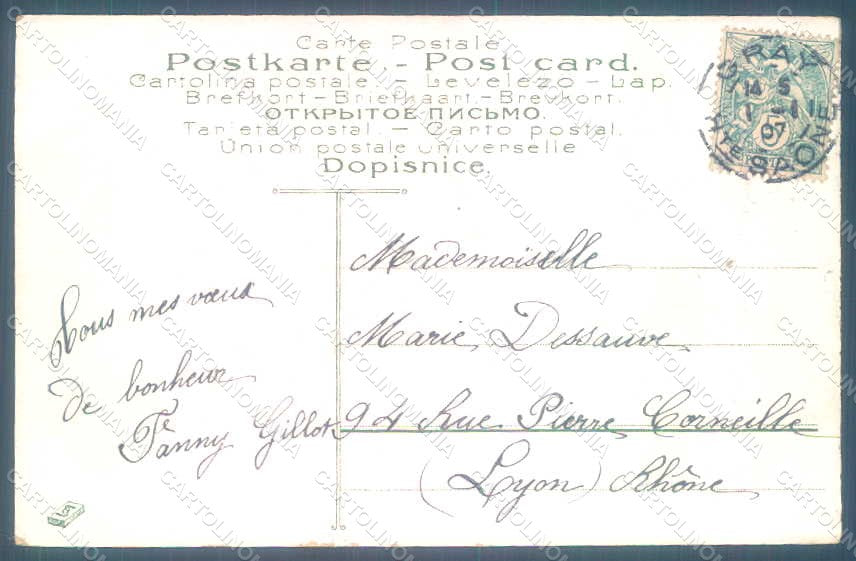 Carte Postale
Postkarte. - Post card.
Cartolina postale. - Levelezo - Lap.
Brefkort - Briefkaart - Brevkort.
ОТКРЫТОЕ ПИСЬМО.
Tarjeta postal. - Carto postal.
Union postale universelle
Dopisnice.
GRAY
14 5
1 - 1
07
HTE SAÔNE
Tous mes vœux
de bonheur
Fanny Gillot
Mademoiselle
Marie Dessauve
94 Rue Pierre Corneille
(Lyon) Rhône
CARTOLINOMANIA